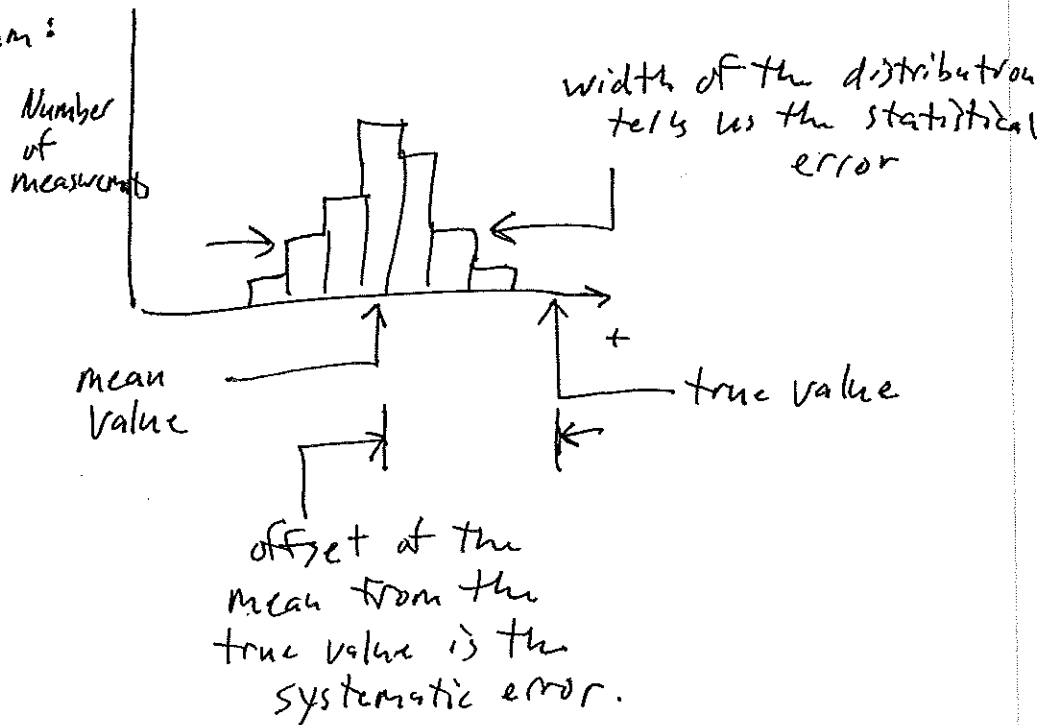 Number
of
measurements
width of the distribution
tells us the statistical
error
mean
value
t
true value
offset of the
mean from the
true value is the
systematic error.